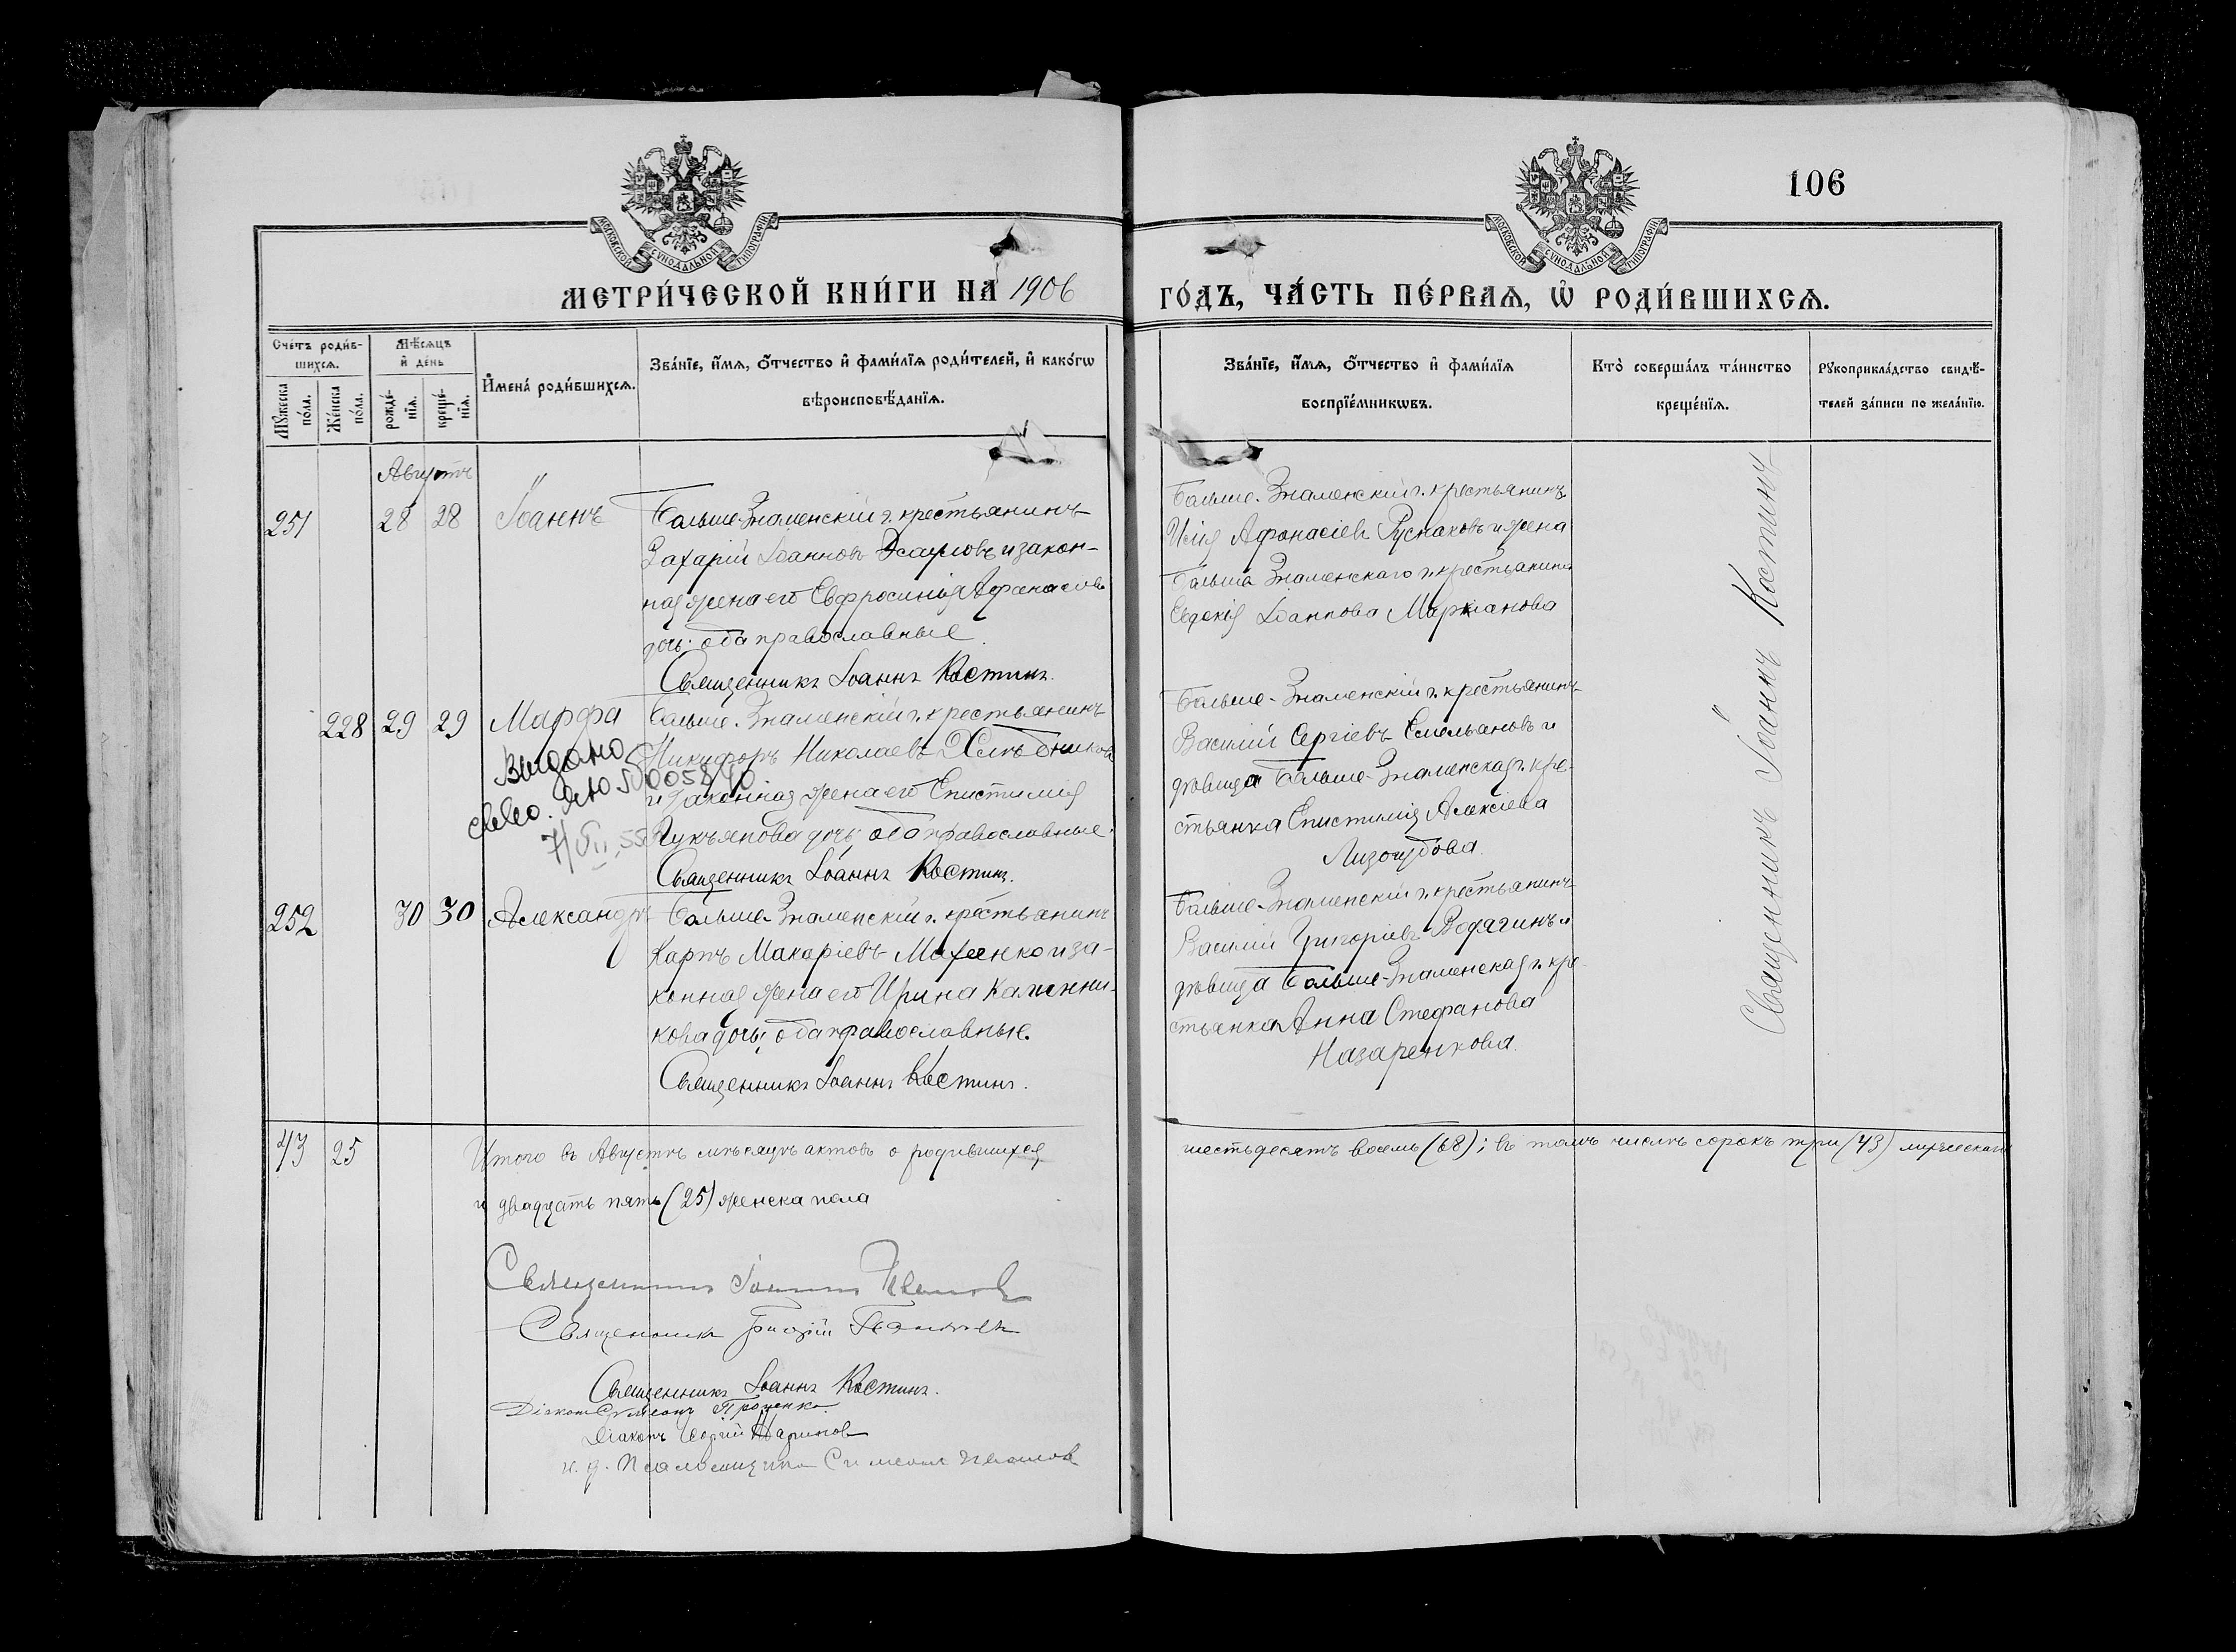 106
МОСКОВСКОЙ СѴНОДАЛЬНОЙ ТИПОГРАФІИ
МОСКОВСКОЙ СѴНОДАЛЬНОЙ ТИПОГРАФІИ
МЕТРИ́ЧЕСКОЙ КНИ́ГИ НА 1906
ГО́ДЪ, ЧА́СТЬ ПЕ́РВАѦ, Ѡ҆ РОДИ́ВШИХСѦ.
Сче́тъ роди́в-
шихсѧ.
Мꙋжеска по́ла.
Же́нска по́ла.
Мѣ́сѧцъ и҆ де́нь
рожде́-
нїѧ.
креще́-
нїѧ.
И҆мена̀ роди́вшихсѧ.
Зва́нїе, и҆́мѧ, ѻ҆́тчество и҆ фами́лїѧ роди́телей, и҆ како́гѡ
вѣроисповѣ́данїѧ.
Зва́нїе, и҆́мѧ, ѻ҆́тчество и҆ фами́лїѧ
воспрїе́мникѡвъ.
Кто̀ соверша́лъ та́инство
креще́нїѧ.
Рꙋкоприкла́дство свидѣ́-
телей за́писи по жела́нїю.
Августъ
251
28 28
Іоаннъ
Больше-Знаменскій г. крестьянинъ
Захарій Іоанновъ Эсауловъ и закон-
ная жена его Евфросинія Афанасова
дочь; оба православные.
Священникъ Іоаннъ Костинъ.
Больше-Знаменскій г. крестьянинъ
Илія Афонасіевъ Русаковъ и жена
Больше Знаменскаго г. крестьянина
Евдокія Іоаннова Маркіанова
228 29 29
Марфа
Больше-Знаменскій г. крестьянинъ
Никифоръ Николаевъ Хлѣбников
и законная жена его Епистимія
Лукьянова дочь; оба православные.
Священникъ Іоаннъ Костинъ.
Видано
свідо. ЯЮ 5000584
7/VII 55
Больше-Знаменскій г. крестьянинъ
Василій Сергіевъ Емельяновъ и
дѣвица Больше-Знаменская г. кре-
стьянка Епистимія Алексіева
Лизогубова.
252
30 30
Александръ
Больше-Знаменскій г. крестьянинъ
Карпъ Макаріевъ Махенко и за-
конная жена его Ирина Калинни-
кова дочь; оба православные.
Священникъ Іоаннъ Костинъ.
Больше-Знаменскій г. крестьянинъ
Василій Григоріевъ и
дѣвица Больше-Знаменская г. кре-
стьянка Анна Стефанова
Назаренкова.
Священникъ Іоаннъ Костинъ
43 25
Итого въ Августѣ мѣсяцѣ актовъ о родившихся
шестьдесятъ восемь (68); въ томъ числѣ сорокъ три (43) мужескаго
и двадцать пять (25) женска пола
Священникъ Іоаннъ Ивановъ
Священникъ
Священникъ Іоаннъ Костинъ.
Діаконъ Сѵмеонъ Проценко
Діаконъ Георгій
и. д. Псаломщика Симеонъ Ивановъ